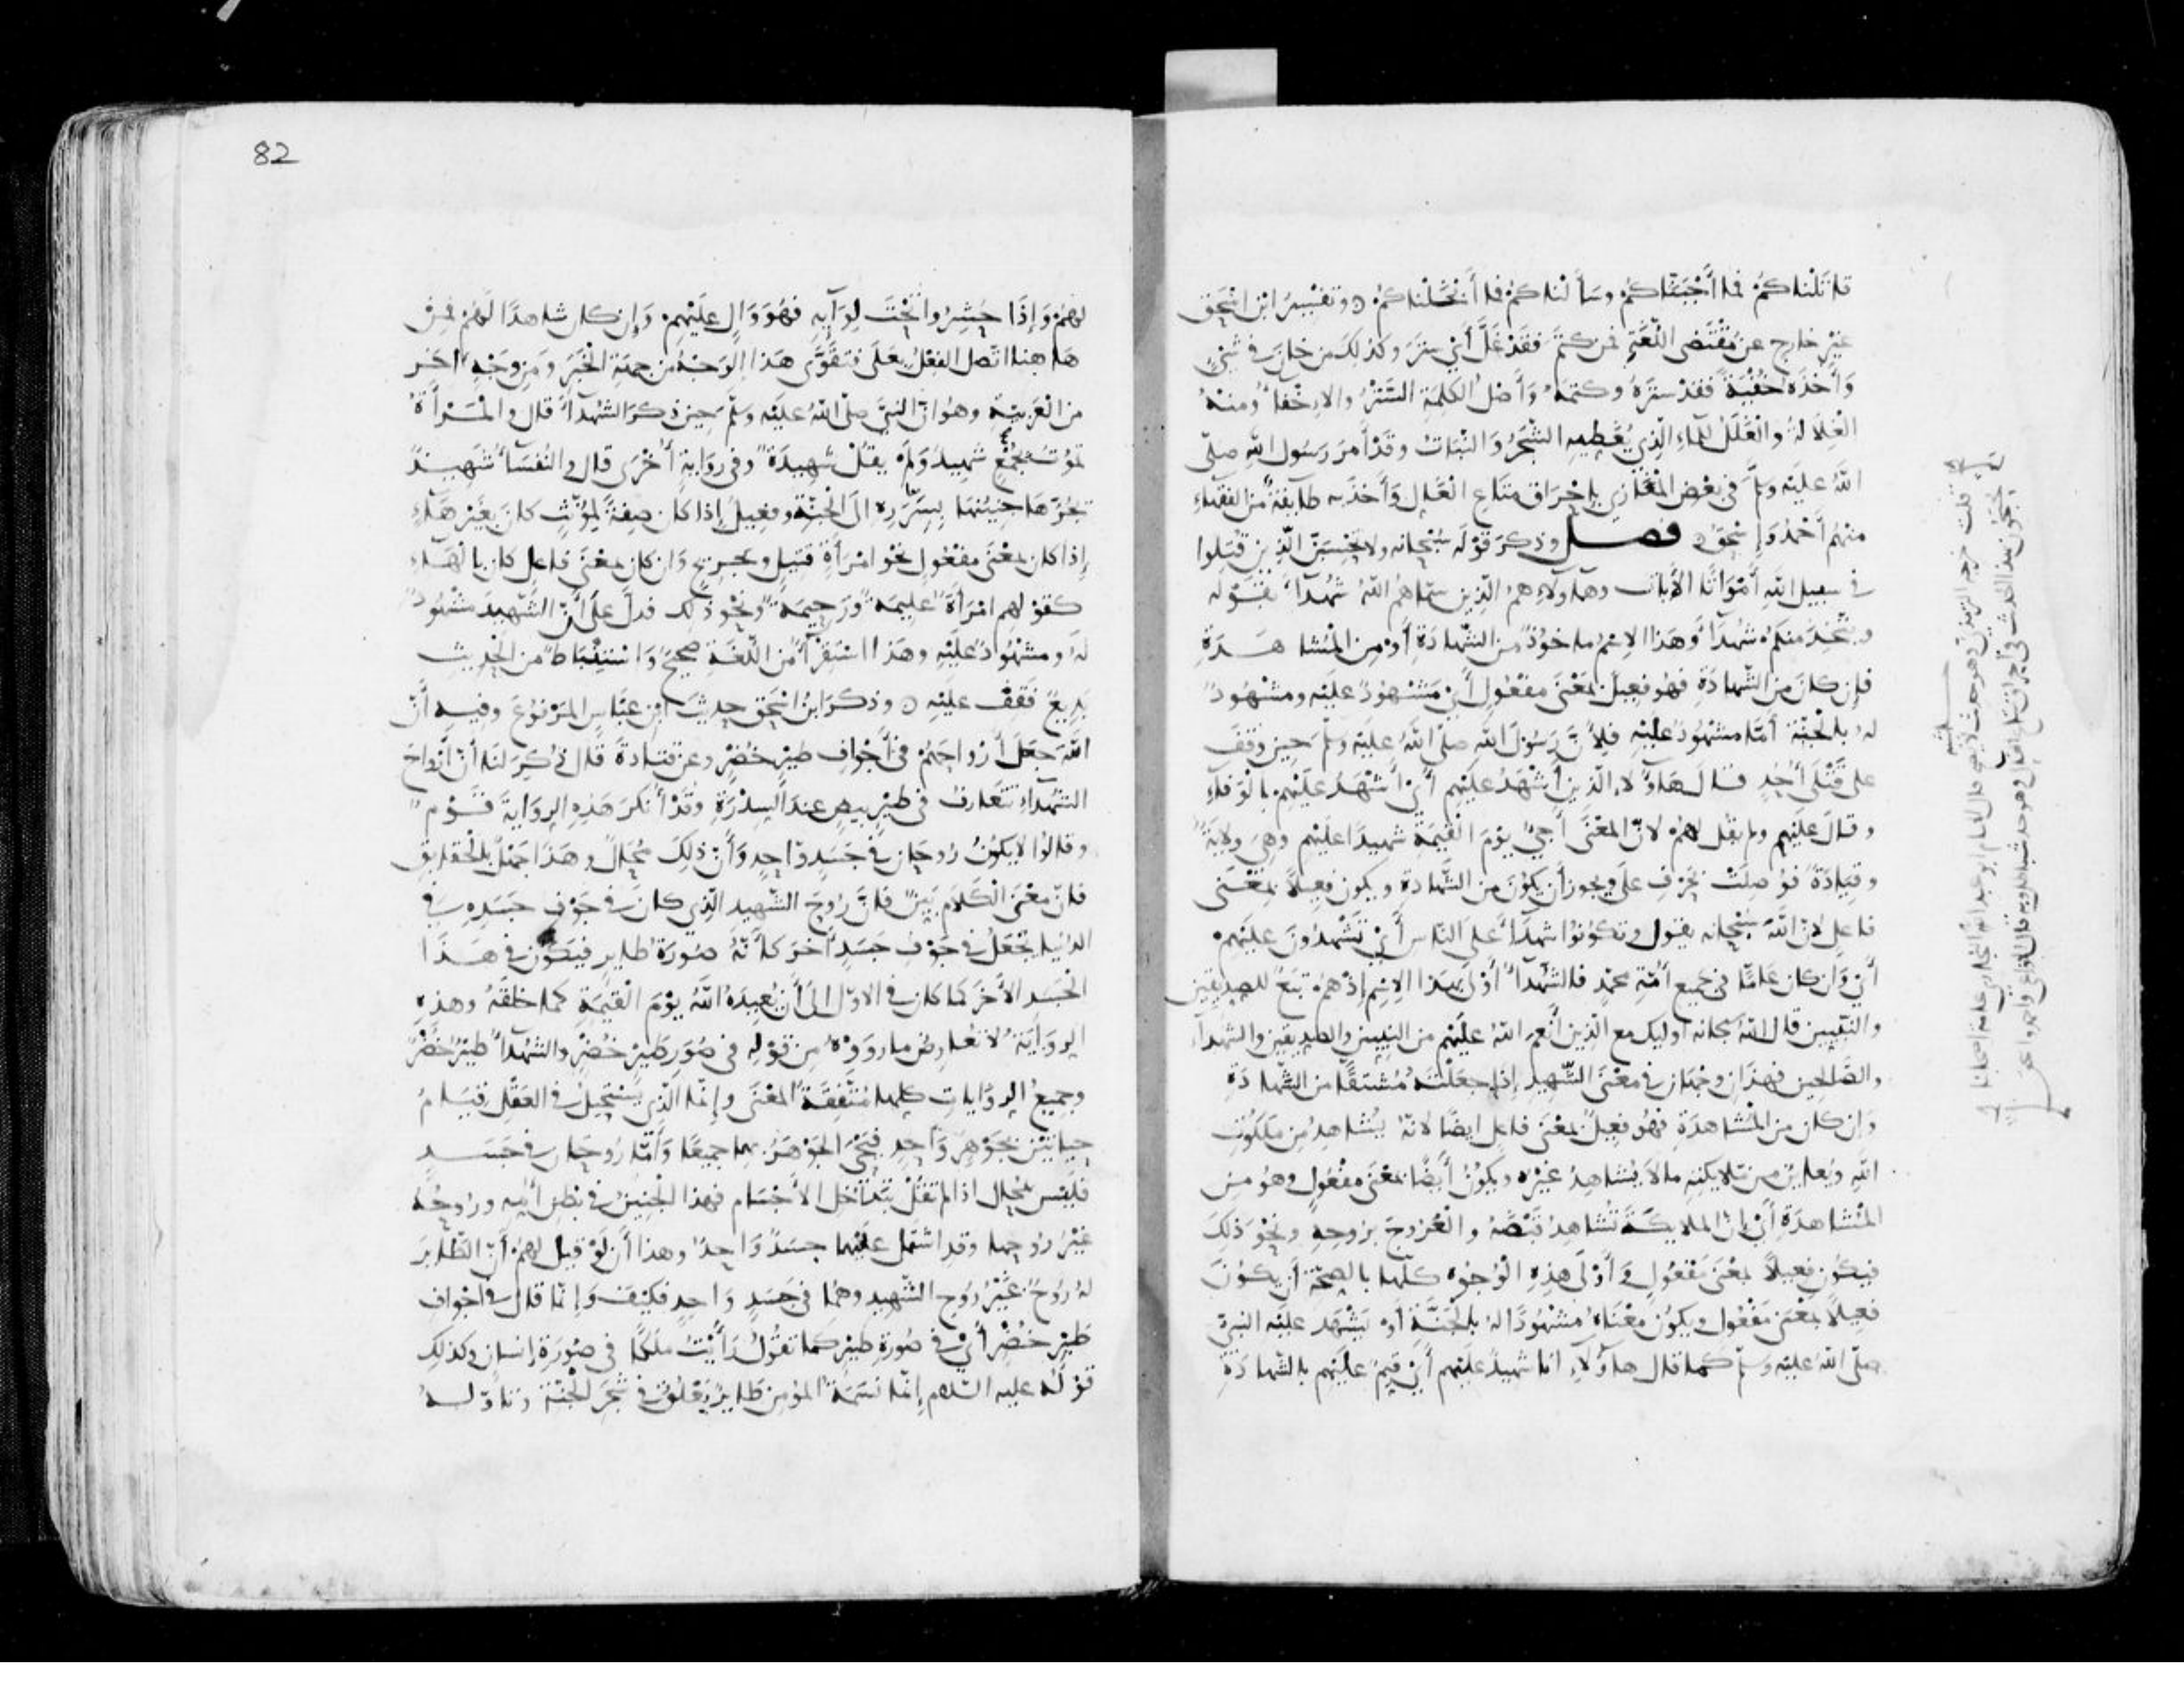 قاتلناكم فما أجبناكم وسألناكم فما أبخلناكم ۝ وتفسير ابن اسحق
غير خارج عن مقتضى اللغة فمن كتم فقد غل أي ستر وكذلك من خان في شيء
وأخذه خفية فقد ستره وكتمه وأصل الكلمة الستر والإخفاء ومنه
الغلالة والغلل للماء الذي يغطيه الشجر والنبات وقد أمر رسول الله صلى
الله عليه وسلم في بعض المغازي بإحراق متاع الغال وأخذ به طايفة من الفقهاء
منهم أحمد وإسحق ۝ فصل وذكر قوله سبحانه ولا تحسبن الذين قتلوا
في سبيل الله أمواتا الآيات وهاولاء هم الذين سماهم الله شهداء بقوله
ويتخذ منكم شهداء وهذا الاسم ماخوذ من الشهادة أو من المشاهدة
فإن كان من الشهادة فهو فعيل بمعنى مفعول أي مشهود عليه ومشهود
له بالجنة أما مشهود عليه فلأن رسول الله صلى الله عليه وسلم حين وقف
على قتلى أحد قال هاؤلاء الذين أشهد عليهم أي أشهد عليهم بالوفاء
وقال عليهم ولم يقل لهم لأن المعنى أجيء يوم القيمة شهيدا عليهم وهي ولاية
وقيادة فوصلت بحرف على ويجوز أن يكون من الشهادة ويكون فعيلا بمعنى
فاعل لأن الله سبحانه يقول وتكونوا شهداء على الناس أي تشهدون عليهم
أي وإن كان عاما في جميع أمة محمد فالشهداء أولى بهذا الاسم إذ هم تبع للصديقين
والنبيين قال الله سبحانه أوليك مع الذين أنعم الله عليهم من النبيين والصديقين والشهداء
والصالحين فهذان وجهان في معنى الشهيد إذا جعلته مشتقا من الشهادة
وإن كان من المشاهدة فهو فعيل بمعنى فاعل أيضا لأنه يشاهد من ملكوت
الله ويعاين من ملايكته ما لا يشاهد غيره ويكون أيضا بمعنى مفعول وهو من
المشاهدة أي إن الملايكة تشاهد قبضه والعروج بروحه ونحو ذلك
فيكون فعيلا بمعنى مفعول وأولى هذه الوجوه كلها بالصحة أن يكون
فعيلا بمعنى مفعول ويكون معناه مشهودا له بالجنة أو يشهد عليه النبي
صلى الله عليه وسلم كما قال هاؤلاء انا شهيد عليهم أي قيم عليهم بالشهادة
قلت خرجه الترمذي وهو حديث
82
لهم وإذا حشروا تحت لوايه فهو وال عليهم وإن كان شاهدا لهم فمن
هاهنا اتصل الفعل بعلى فتقوى هذا الوجه من جهة الخبر ومن وجه آخر
من العربية وهو ان النبي صلى الله عليه وسلم حين ذكر الشهداء قال والمرأة
تموت بجمع شهيد ولم يقل شهيدة وفي رواية أخرى قال والنفساء شهيد
يجرها جنينها بسرره الى الجنة وفعيل إذا كان صفة لمؤنث كان بغير هاء
إذا كان بمعنى مفعول نحو امرأة قتيل وجريح وإن كان بمعنى فاعل كان بالهاء
كقولهم امرأة عليمة ورحيمة ونحو ذلك فدل على أن الشهيد مشهود
له ومشهود عليه وهذا استقراء من اللغة صحيح واستنباط من الحديث
بديع فقف عليه ۝ وذكر ابن اسحق حديث ابن عباس المرفوع وفيه أن
الله جعل أرواحهم في أجواف طير خضر وعن قتادة قال ذكر لنا أن أرواح
الشهداء تتعارف في طير بيض عند السدرة وقد أنكر هذه الرواية قوم
وقالوا لا يكون روحان في جسد واحد وأن ذلك محال وهذا جهل بالحقايق
فان معنى الكلام بين فان روح الشهيد الذي كان في جوف جسده في
الدنيا يجعل في جوف جسد آخر كأنه صورة طاير فيكون في هذا
الجسد الأخر كما كان في الاول الى أن يعيده الله يوم القيمة كما خلقه وهذه
الرواية لا تعارض ما رووه من قوله في صور طير خضر والشهداء طير خضر
وجميع الروايات كلها متفقة المعنى وإنما الذي يستحيل في العقل قيام
حياتين بجوهر واحد فيحيى الجوهر بهما جميعا وأما روحان في جسد
فليس بمحال اذا لم تقل بتداخل الأجسام فهذا الجنين في بطن أمه وروحه
غير روحها وقد اشتمل عليهما جسد واحد وهذا أن لو قيل لهم أن الطاير
له روح غير روح الشهيد وهما في جسد واحد فكيف وإنما قال في أجواف
طير خضر أي في صورة طير كما تقول رأيت ملكا في صورة إنسان وكذلك
قوله عليه السلام إنما نسمة المؤمن طاير يعلق في شجر الجنة